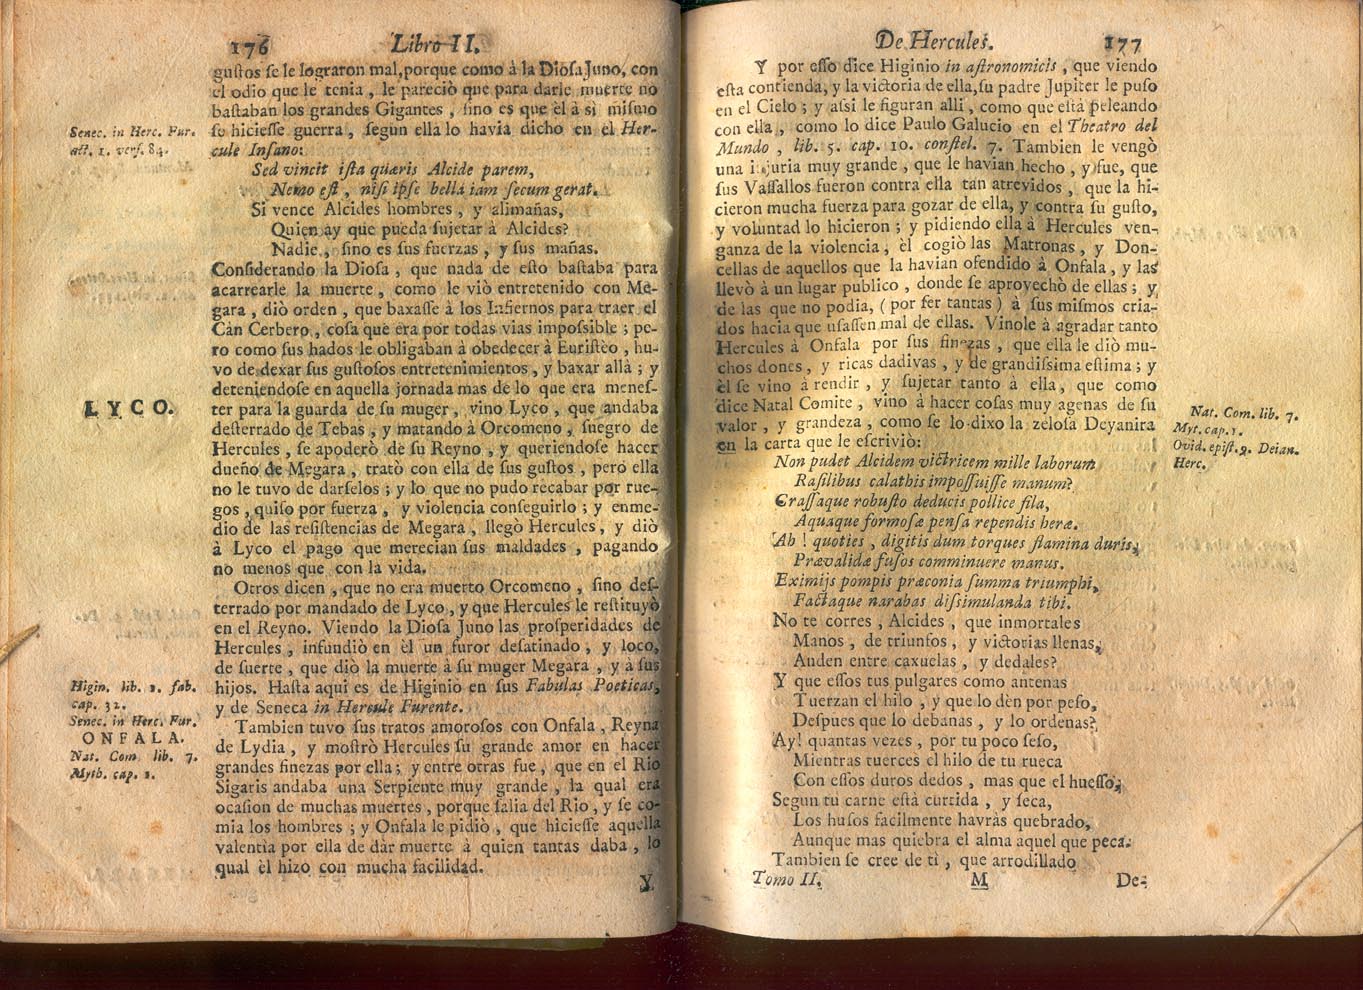 176 Libro II.
guſtos ſe le lograron mal, porque como à la Dioſa Juno, con
el odio que le tenia, le pareciò que para darle muerte no
baſtaban los grandes Gigantes, ſino es que èl à sì miſmo
ſe hicieſſe guerra, ſegun ella lo havia dicho en el Her-
cule Inſano:
Senec. in Herc. Fur.
act. 1. verſ. 84.
Sed vincit iſta quæris Alcide parem,
Nemo eſt, niſi ipſe bella iam ſecum gerat.
Si vence Alcides hombres, y alimañas,
Quien ay que pueda ſujetar à Alcides?
Nadie, ſino es ſus fuerzas, y ſus mañas.
Conſiderando la Dioſa, que nada de eſto baſtaba para
acarrearle la muerte, como le viò entretenido con Me-
gara, diò orden, que baxaſſe à los Infiernos para traer el
Càn Cerbero, coſa que era por todas vias impoſsible; pe-
ro como ſus hados le obligaban à obedecer à Euriſtèo, hu-
vo de dexar ſus guſtoſos entretenimientos, y baxar allà; y
deteniendoſe en aquella jornada mas de lo que era meneſ-
ter para la guarda de ſu muger, vino Lyco, que andaba
LYCO.
deſterrado de Tebas, y matando à Orcomeno, ſuegro de
Hercules, ſe apoderò de ſu Reyno, y queriendoſe hacer
dueño de Megara, tratò con ella de ſus guſtos, pero ella
no le tuvo de darſelos; y lo que no pudo recabar por rue-
gos, quiſo por fuerza, y violencia conſeguirlo; y enme-
dio de las reſiſtencias de Megara, llegò Hercules, y diò
à Lyco el pago que merecian ſus maldades, pagando
no menos que con la vida.
Otros dicen, que no era muerto Orcomeno, ſino deſ-
terrado por mandado de Lyco, y que Hercules le reſtituyò
en el Reyno. Viendo la Dioſa Juno las proſperidades de
Hercules, infundiò en èl un furor deſatinado, y loco,
de ſuerte, que diò la muerte à ſu muger Megara, y à ſus
hijos. Haſta aqui es de Higinio en ſus Fabulas Poeticas,
y de Seneca in Hercule Furente.
Higin. lib. 1. fab.
cap. 32.
Senec. in Herc. Fur.
ONFALA.
Nat. Com. lib. 7.
Myth. cap. 1.
Tambien tuvo ſus tratos amoroſos con Onfala, Reyna
de Lydia, y moſtrò Hercules ſu grande amor en hacer
grandes finezas por ella; y entre otras fue, que en el Rio
Sigaris andaba una Serpiente muy grande, la qual era
ocaſion de muchas muertes, porque ſalia del Rio, y ſe co-
mia los hombres; y Onfala le pidiò, que hicieſſe aquella
valentia por ella de dàr muerte à quien tantas daba, lo
qual èl hizo con mucha facilidad.
Y
De Hercules. 177
Y por eſſo dice Higinio in aſtronomicis, que viendo
eſta contienda, y la victoria de ella, ſu padre Jupiter le puſo
en el Cielo; y aſsi le figuran alli, como que eſtà peleando
con ella, como lo dice Paulo Galucio en el Theatro del
Mundo, lib. 5. cap. 10. conſtel. 7. Tambien le vengò
una injuria muy grande, que le havian hecho, y fue, que
ſus Vaſſallos fueron contra ella tan atrevidos, que la hi-
cieron mucha fuerza para gozar de ella, y contra ſu guſto,
y voluntad lo hicieron; y pidiendo ella à Hercules ven-
ganza de la violencia, èl cogiò las Matronas, y Don-
cellas de aquellos que la havian ofendido à Onfala, y las
llevò à un lugar publico, donde ſe aprovechò de ellas; y
de las que no podia, (por ſer tantas) à ſus miſmos cria-
dos hacia que uſaſſen mal de ellas. Vinole à agradar tanto
Hercules à Onfala por ſus finezas, que ella le diò mu-
chos dones, y ricas dadivas, y de grandiſsima eſtima; y
èl ſe vino à rendir, y ſujetar tanto à ella, que como
dice Natal Comite, vino à hacer coſas muy agenas de ſu
valor, y grandeza, como ſe lo dixo la zeloſa Deyanira
en la carta que le eſcriviò:
Nat. Com. lib. 7.
Myt. cap. 1.
Ovid. epiſt. 9. Deian.
Herc.
Non pudet Alcidem victricem mille laborum
Raſilibus calathis impoſſuiſſe manum?
Craſſaque robuſto deducis pollice fila,
Aquaque formoſæ penſa rependis heræ.
Ah! quoties, digitis dum torques ſtamina duris,
Prævalidæ fuſos comminuere manus.
Eximijs pompis præconia ſumma triumphi,
Factaque narabas diſsimulanda tibi.
No te corres, Alcides, que inmortales
Manos, de triunfos, y victorias llenas,
Anden entre caxuelas, y dedales?
Y que eſſos tus pulgares como antenas
Tuerzan el hilo, y que lo dèn por peſo,
Deſpues que lo debanas, y lo ordenas?
Ay! quantas vezes, por tu poco ſeſo,
Mientras tuerces el hilo de tu rueca
Con eſſos duros dedos, mas que el hueſſo;
Segun tu carne eſtà curtida, y ſeca,
Los huſos facilmente havràs quebrado,
Aunque mas quiebra el alma aquel que peca.
Tambien ſe cree de tì, que arrodillado
Tomo II. M De-